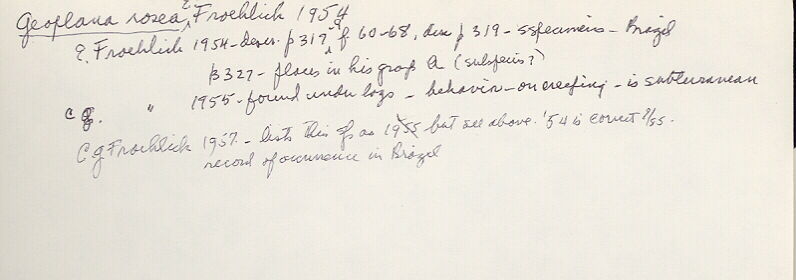 Geoplana rosea E. Froehlich 1954
E. Froehlich 1954 - descr. p 317-9 f 60-68, disc p 319 - 5 specimens - Brazil
p 327 - places in his group A (subspecies?)
C.G. " 1955 - found under logs - behavior - on creeping - is subterranean
C G Froehlich 1957 - lists this sp as 1955 but see above. '54 is correct
record of occurrence in Brazil